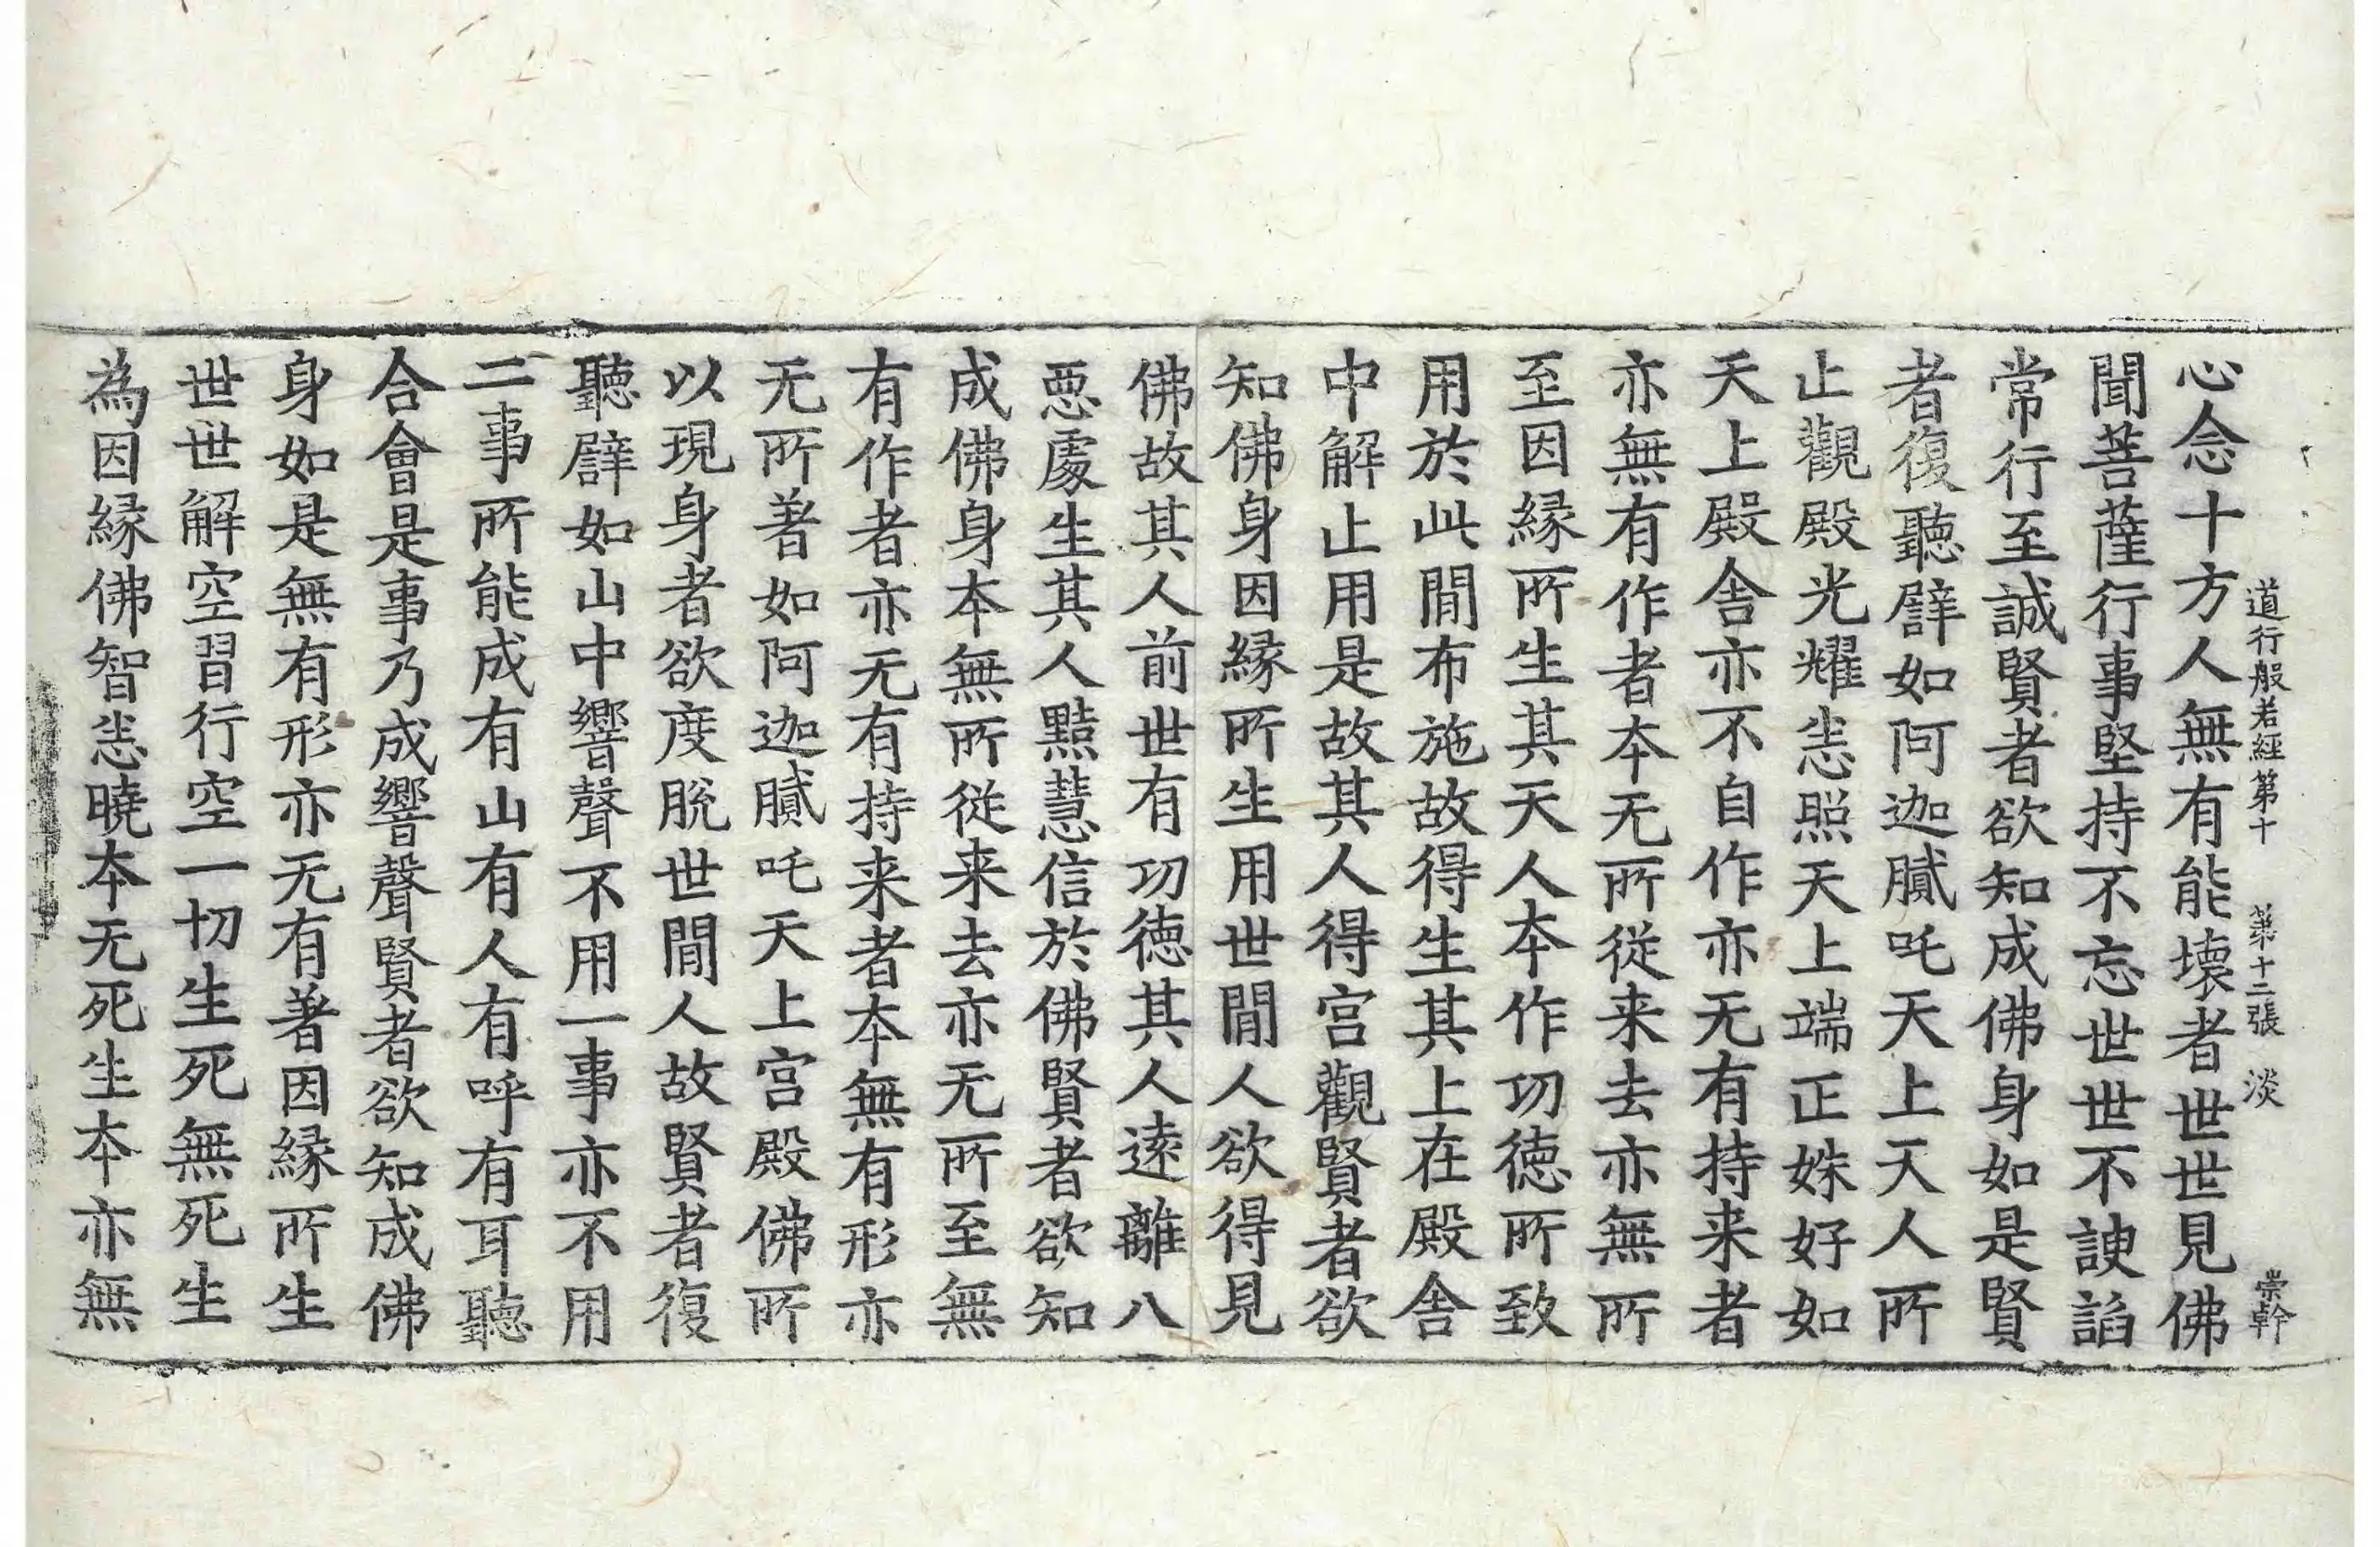 道行般若經第十 第十二張 淡 崇幹
心念十方人無有能壞者世世見佛
聞菩薩行事堅持不忘世世不諛謟
常行至誠賢者欲知成佛身如是賢
者復聽譬如阿迦膩吒天上天人所
止觀殿光耀恙照天上端正姝好如
天上殿舍亦不自作亦无有持来者
亦無有作者本无所從来去亦無所
至因緣所生其天人本作功徳所致
用於此閒布施故得生其上在殿舍
中解止用是故其人得宮觀賢者欲
知佛身因緣所生用世閒人欲得見
佛故其人前世有功徳其人遠離八
惡處生其人黠慧信於佛賢者欲知
成佛身本無所從来去亦无所至無
有作者亦无有持来者本無有形亦
无所著如阿迦膩吒天上宮殿佛所
以現身者欲度脫世閒人故賢者復
聽譬如山中響聲不用一事亦不用
二事所能成有山有人有呼有耳聽
合會是事乃成響聲賢者欲知成佛
身如是無有形亦无有著因緣所生
世世解空習行空一切生死無死生
為因緣佛智恙曉本无死生本亦無